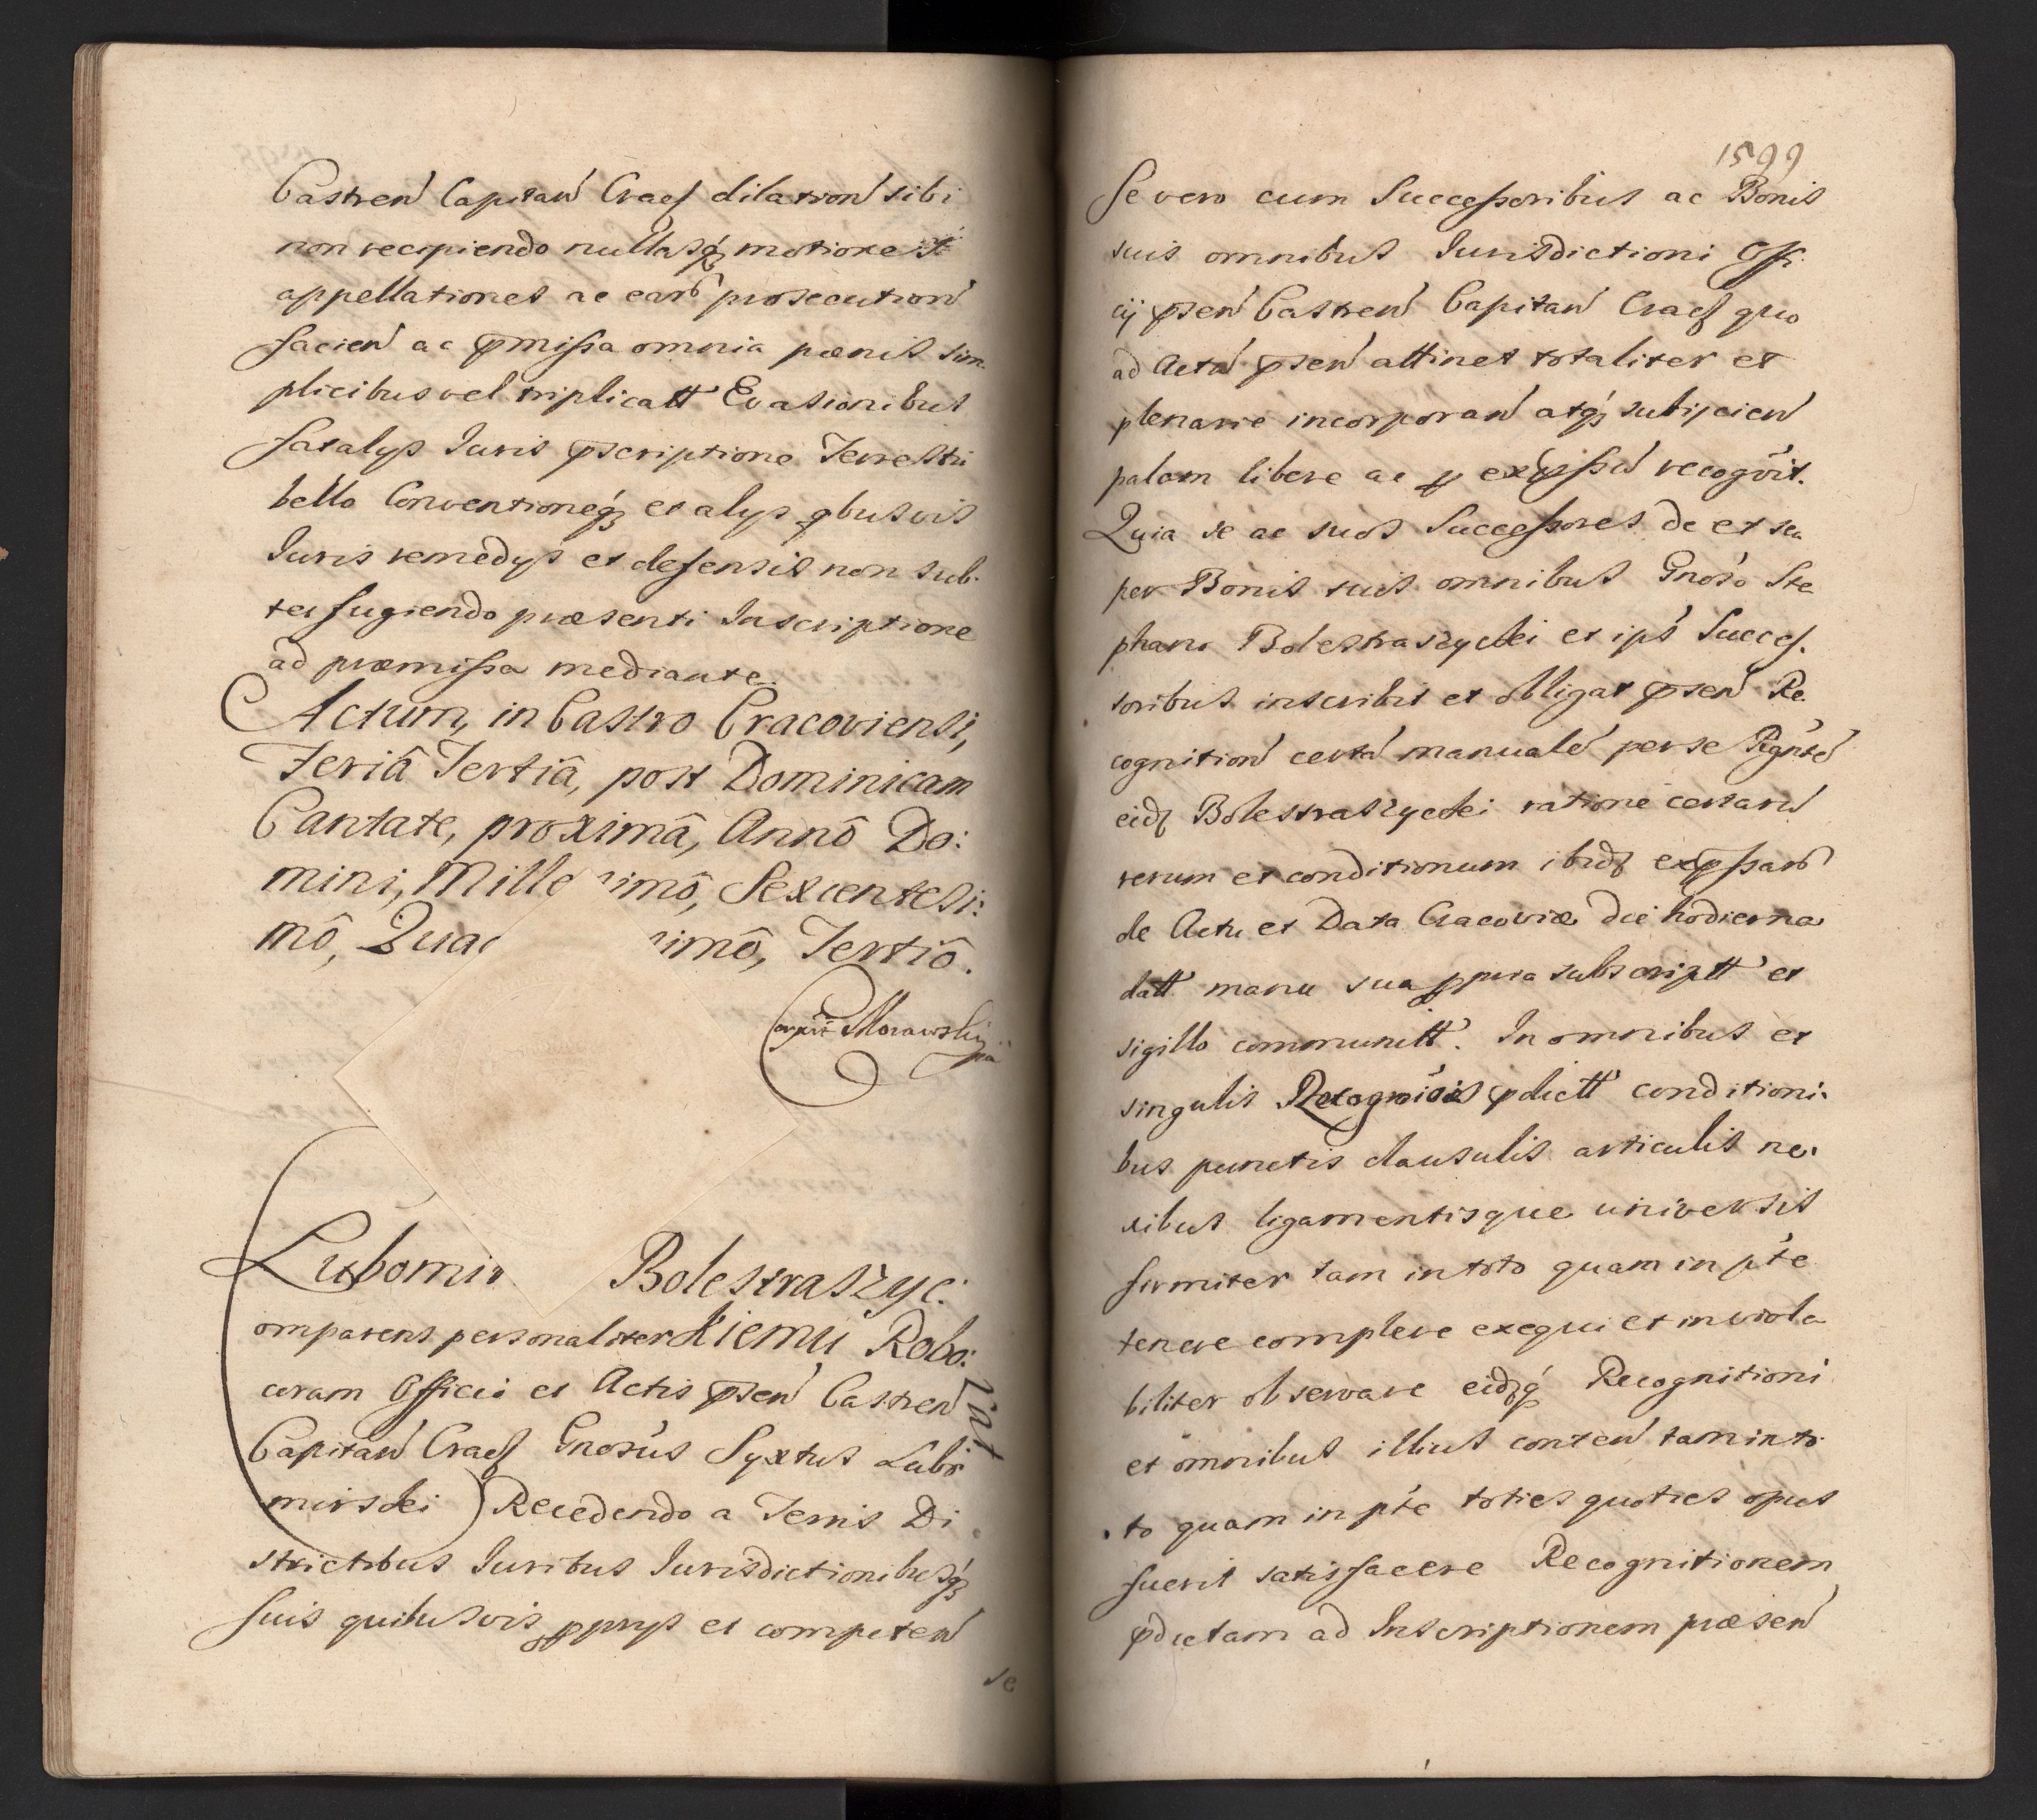 Castren Capitan Cracẜ dilation sibi
non recipiendo nullasq́ʒ motiones
appellationes ac earꝰ prosecution
facien ac p̄missa omnia pœnis sim-
plicibus vel triplicatt Evasionibus
fatalys Juris p̄scriptione Terrestri
bello Conventioneq́ʒ et alys qbusvis
Juris remedys et defensis non sub-
terfugiendo præsenti Inscriptione
ad præmissa mediante.
Actum, in Castro Cracoviensi,
Feriâ Tertiâ, post Dominicam
Cantate, proximâ, Annô Do:
mini, Mille imô, Sexcentesi:
mô, Qua imô, Tertiô.
Morawskÿ
Lubomir Bolestraszyc:
omparens personaliter kiemu Robo:
rat
coram Officio et Actis p̄sen Castren
Capitan Cracẜ Gnosús Syxtus Lubo
mirskei Recedendo a Terris Di
strictibus Juribus Jurisdictionibusq́ʒ
suis quibusvis ꝓprys et competen
se
1599
Se vero cum Successoribus ac Bonis
suis omnibus Jurisdictioni Offi
cÿ p̄sen Castren Capitan Cracẜ quo
ad Actú p̄sen attinet totaliter et
plenarie incorporan atq́ʒ subijcien
palam libere ac ꝑ exp̄ssú recogōit.
Quia se ac suos Successores de et su
per Bonis suis omnibus Gnoso Ste
phano Bolestraszyckei et ips Succeſ.
soribus inscribit et obligat p̄sen Re
cognition certa manuale per se Rognitó
eidʒ Bolestraszyckei ratione certarú
rerum et conditionum ibidʒ exp̄ssarꝰ
de Actu et Data Cracoviæ die hodierna
datt manu sua ꝓpria subscriptt et
sigillo communitt. In omnibus et
singulis Recognōis p̄dictt conditioni:
bus punctis clausulis articulis ne:
xibus ligamentisque universis
firmiter tam in toto quam in pte
tenere complere exequi et inviola
biliter observare eidʒq́ Recognitioni
et omnibus illius conten tam in to
to quam in pte toties quoties opus
fuerit satisfacere Recognitionem
p̄dictam ad Inscriptionem præsen